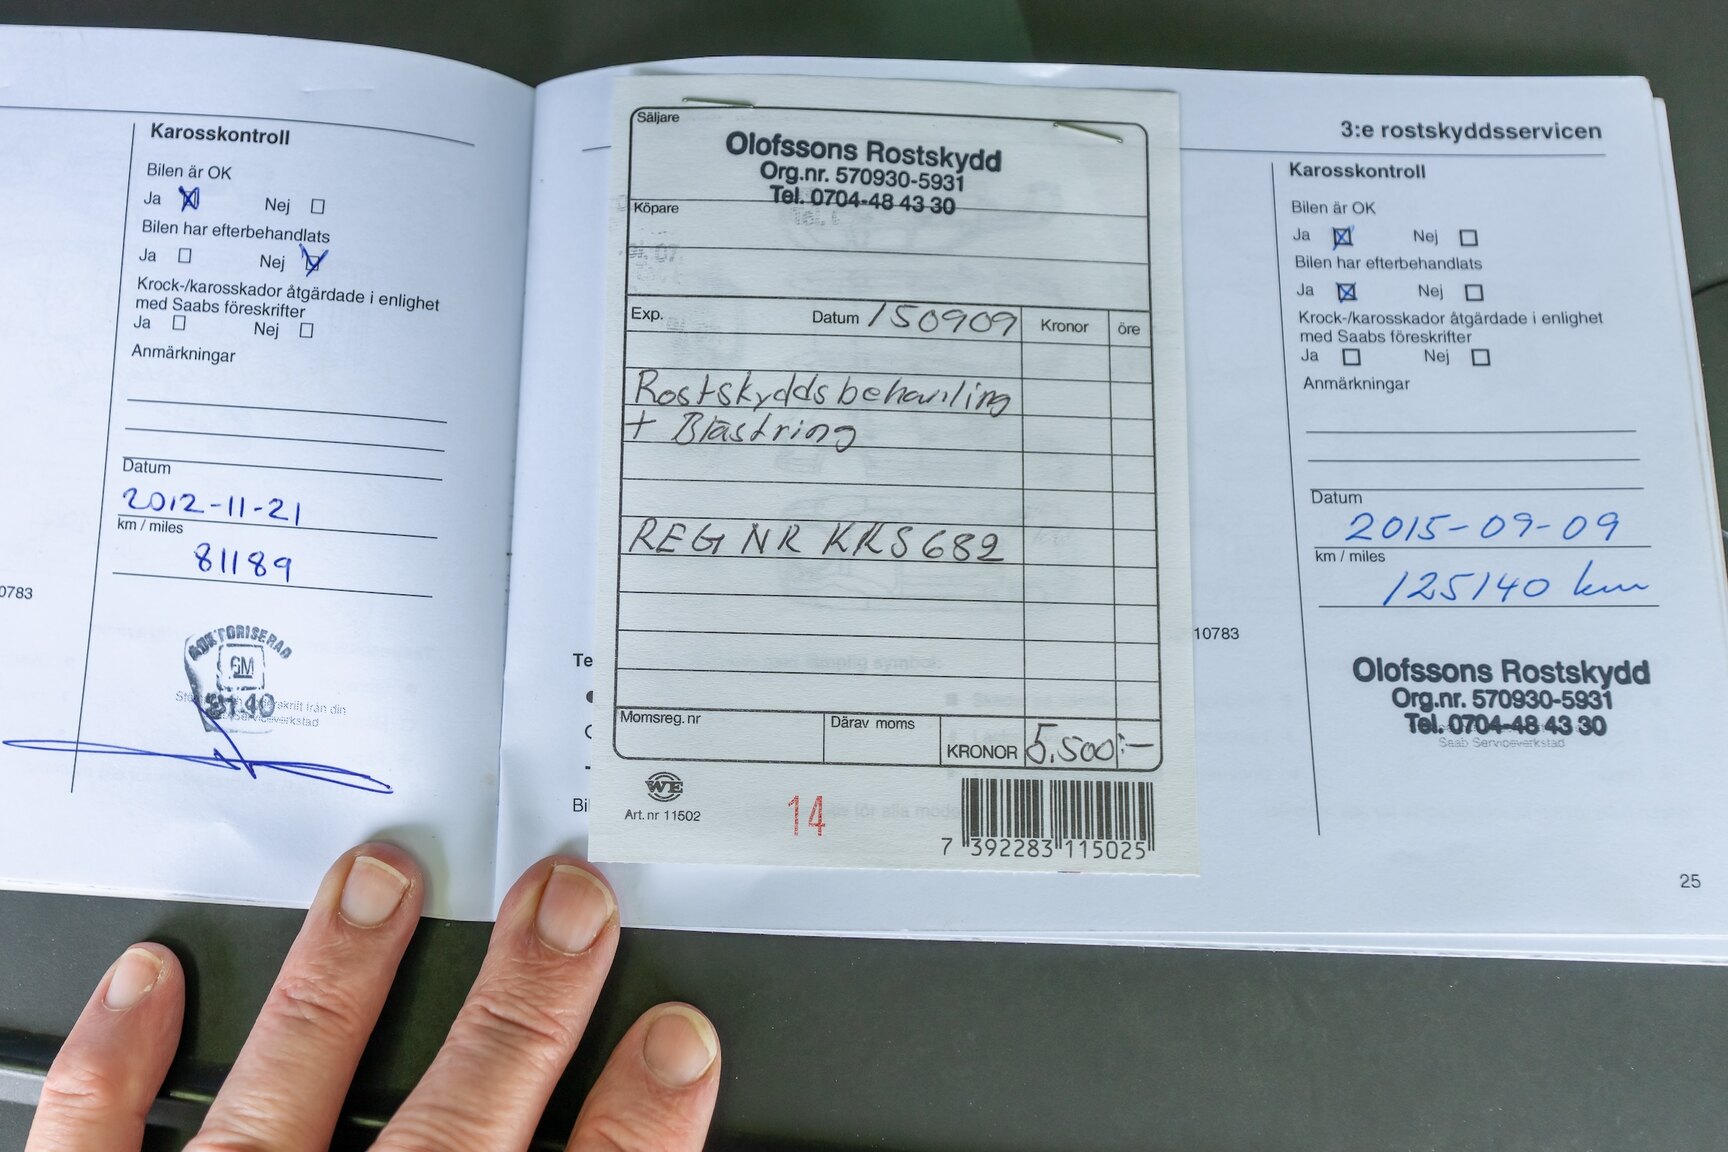 Karosskontroll
Bilen är OK
Ja Nej
Bilen har efterbehandlats
Ja Nej
Krock-/karosskador åtgärdade i enlighet
med Saabs föreskrifter
Ja Nej
Anmärkningar
Datum
2012-11-21
km / miles
81189
0783
AUKTORISERAD
GM
Säljare
Olofssons Rostskydd
Org.nr. 570930-5931
Tel. 0704-48 43 30
Köpare
Exp. Datum 150909 Kronor öre
Rostskyddsbehanling
+ Blästring
REG NR KRS682
Momsreg.nr Därav moms KRONOR 5.500:-
WE
Art.nr 11502
14
7 392283 115025
Te
Bi
3:e rostskyddsservicen
Karosskontroll
Bilen är OK
Ja Nej
Bilen har efterbehandlats
Ja Nej
Krock-/karosskador åtgärdade i enlighet
med Saabs föreskrifter
Ja Nej
Anmärkningar
Datum
2015-09-09
km / miles
125140 km
10783
Olofssons Rostskydd
Org.nr. 570930-5931
Tel. 0704-48 43 30
Saab Serviceverkstad
25